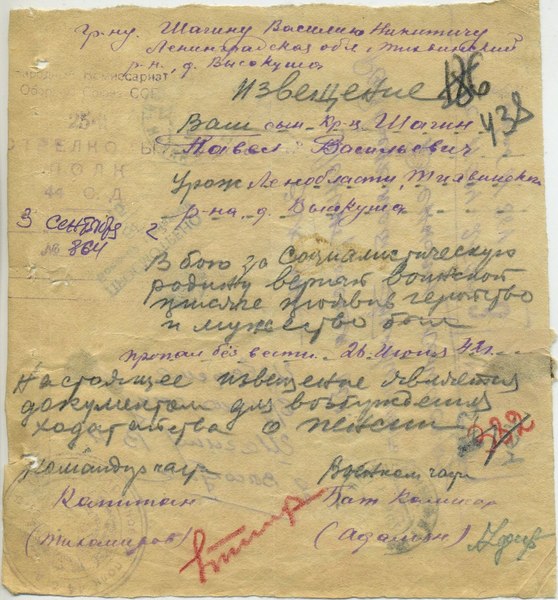 гр-ну. Шагину Василию Никитичу
Ленинградская обл. Тихвинский
р-н, д. Высокуша
Народный Комиссариат
Обороны Союза ССР
Извещение
186
438
Ваш сын кр-ц Шагин
Павел Васильевич
СТРЕЛКОВЫЙ
ПОЛК
44 С.Д.
Урож Ленобласти, Тихвинский
р-на д. Высокуша
3 сентября
№ 864
В бою за социалистическую
родину верный воинской
присяге проявив геройство
и мужество был
пропал без вести 26 июля 41 г.
Настоящее извещение является
документом для возбуждения
ходатайства о пенсии
322
Командир части
Военком части
Капитан
Бат Комисар
(Тихомиров)